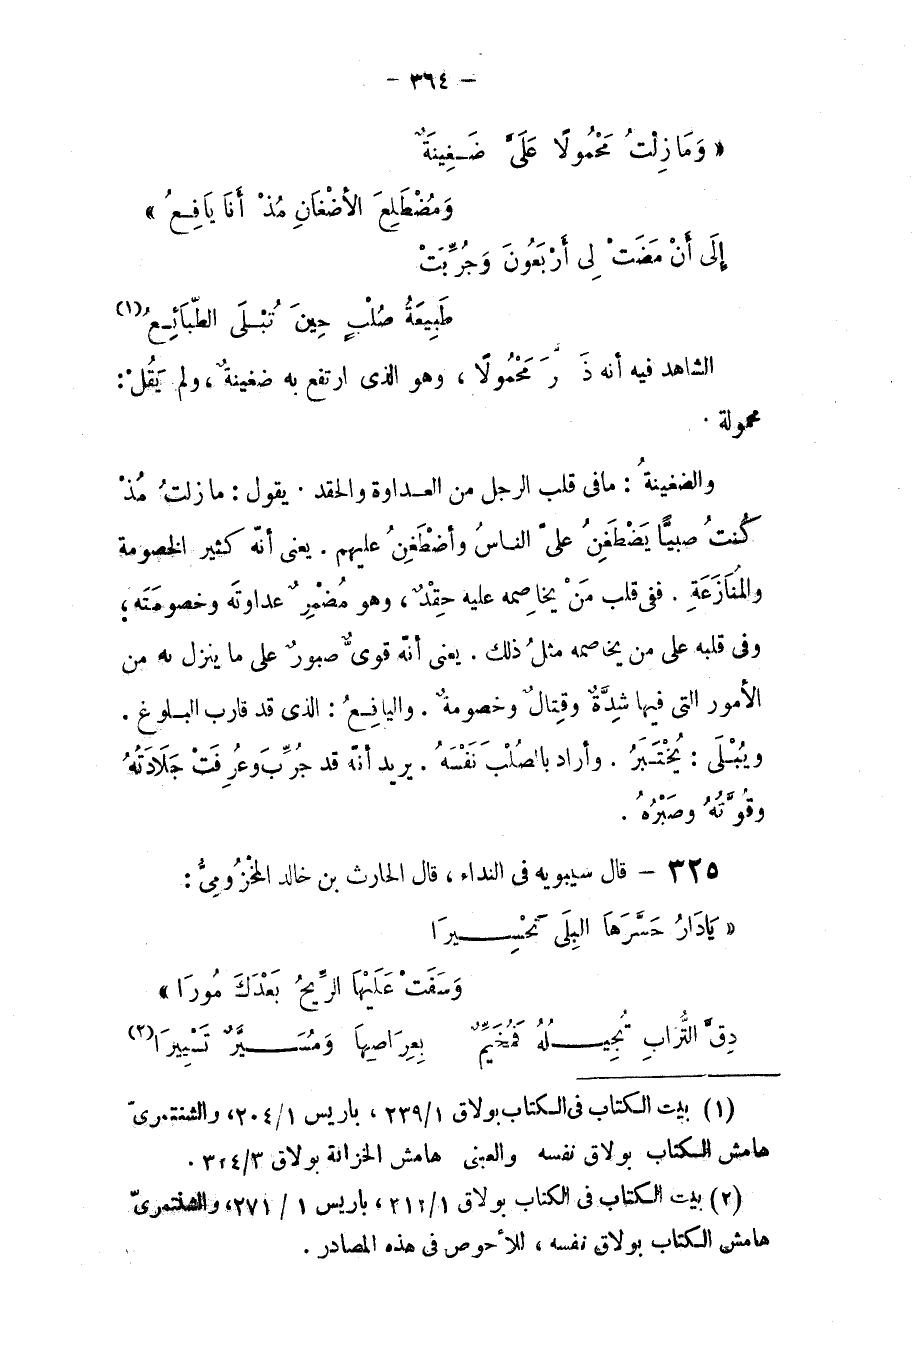 - ٣٦٤ -
« وَمَا زِلْتُ مَحْمُولًا عَلَيَّ ضَغِينَةٌ
وَمُضْطَلِعَ الأضْغَانِ مُذْ أَنَا يَافِعُ »
إِلَى أَنْ مَضَتْ لِى أَرْبَعُونَ وَجُرِّبَتْ
طَبِيعَةُ صُلْبٍ حِينَ تُبْلَى الطَّبَائِعُ(١)
الشاهد فيه أنه ذَ رَ مَحْمُولًا ، وهو الذى ارتفع به ضغينةٌ، ولم يَقُلْ :
محمولة .
والضغينةُ : مافى قلب الرجل من العداوة والحقد . يقول : ما زلتُ مُذْ
كُنتُ صبيًّا يَضْطَغِنُ علىّ الناسُ وأضْطَغِنُ عليهم . يعنى أنّه كثير الخصومة
والمُنَازَعَةِ . ففى قلب مَنْ يخاصمه عليه حِقْدٌ ، وهو مُضْمِرٌ عداوتَه وخصومَتَه ؛
وفى قلبه على من يخاصمه مثلُ ذلك . يعنى أنّه قوىٌّ صبورٌ على ما ينزل به من
الأمور التى فيها شِدَّةٌ وقِتالٌ وخصومةٌ . واليافِعُ : الذى قد قارب البلوغ .
ويُبْلَى : يُخْتَبَرُ . وأراد بالصُلْبِ نَفْسَهُ . يريد أنّه قد جُرِّبَ وعُرِفَتْ جَلَادَتُهُ
وقُوَّتُهُ وصَبْرُهُ .
٣٢٥ – قال سيبويه فى النداء ، قال الحارث بن خالد المَخْزُومِىُّ :
« يَادَارُ حَسَّرَهَا البِلَى تَحْسِيرَا
وَسَفَتْ عَلَيْهَا الرِّيحُ بَعْدَكَ مُورَا »
دِقَّ التُّرَابِ تُجِيلُهُ فَمُخَيِّمٌ بِعِرَاصِهَا وَمُسَيَّرٌ تَسْيِيرَا(٢)
(١) بيت الكتاب فى الكتاب بولاق ٢٣٩/١ ، باريس ٢٠٤/١، والشنتمرىّ
هامش الكتاب بولاق نفسه والعينى هامش الخزانة بولاق ٣٢٤/٣ .
(٢) بيت الكتاب فى الكتاب بولاق ٣١٢/١ ، باريس ١ / ٢٧١، والشنتمرىّ
هامش الكتاب بولاق نفسه ، للأحوص فى هذه المصادر .